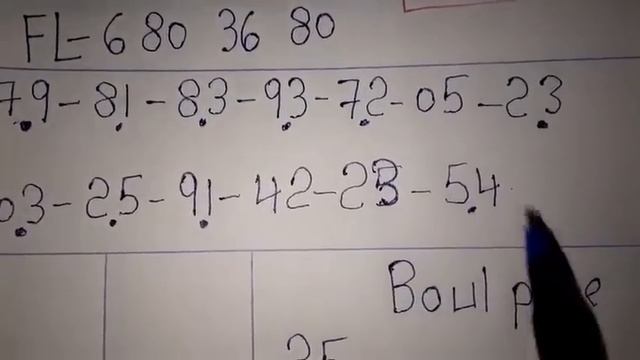 FL-6 80 36 80
79-81-83-93-72-05-23
03-25-91-42-23-54
Boul
25